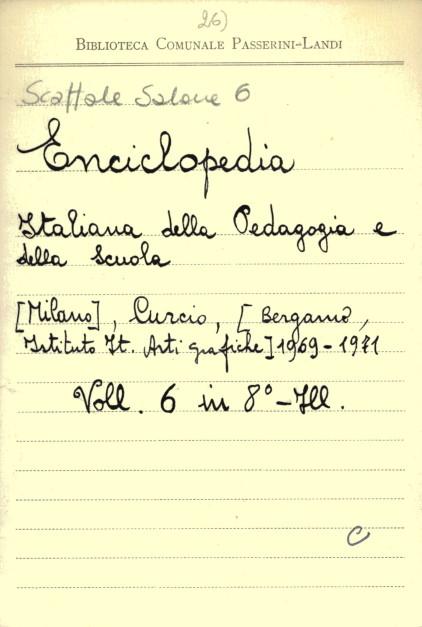 26)
BIBLIOTECA COMUNALE PASSERINI-LANDI
Scaffale Salone 6
Enciclopedia
Italiana della Pedagogia e
della Scuola
[Milano], Curcio, [Bergamo,
Istituto It. Arti grafiche] 1969-1971
Voll. 6 in 8°-Ill.
C